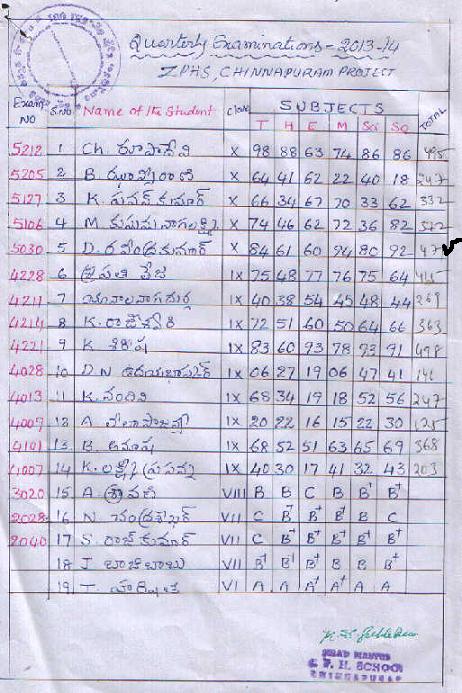 Quarterly Examinations - 2013-14
ZPHS, CHINNAPURAM PROJECT
Exam NO S.No Name of the Student class SUBJECTS TOTAL
T H E M Sci So
5212 1 Ch. రూపాదేవి X 98 88 63 74 86 86 495
5205 2 B. ఝాన్సీరాణి X 64 41 62 22 40 18 247
5127 3 K. పవన్ కుమార్ X 66 34 67 70 33 62 332
5106 4 M. కుసుమ నాగలక్ష్మి X 74 46 62 72 36 82
5030 5 D. రవీంద్రకుమార్ X 84 61 60 94 80 92
4228 6 IX 75 48 77 76 75 64 415
4211 7 IX 40 38 54 45 48 44 269
4214 8 K. రాజేశ్వరి IX 72 51 60 50 64 66 363
4221 9 K. శిరీష IX 83 60 93 78 93 91 498
4028 10 D.N. ఉదయభాస్కర్ IX 06 27 19 06 47 41 146
4013 11 K. నందిని IX 68 34 19 18 52 56 247
4009 12 A. IX 20 22 16 15 22 30 125
4101 13 B. అనూష IX 68 52 51 63 65 69 368
4007 14 K. లక్ష్మీ ప్రసన్న IX 40 30 17 41 32 43 203
3020 15 A. శ్రావణి VIII B B C B B⁺ B⁺
2028 16 N. చంద్రశేఖర్ VII C B⁺ B⁺ B⁺ B C
2040 17 S. రాజ్ కుమార్ VII C B⁺ B⁺ B B B⁺
18 J. బాజిబాబు VII B⁺ B⁺ B B B⁺ B⁺
19 T. హారిక VI A A A⁺ A⁺ A A
HEAD MASTER
Z. P. H. SCHOOL
CHINNAPURAM